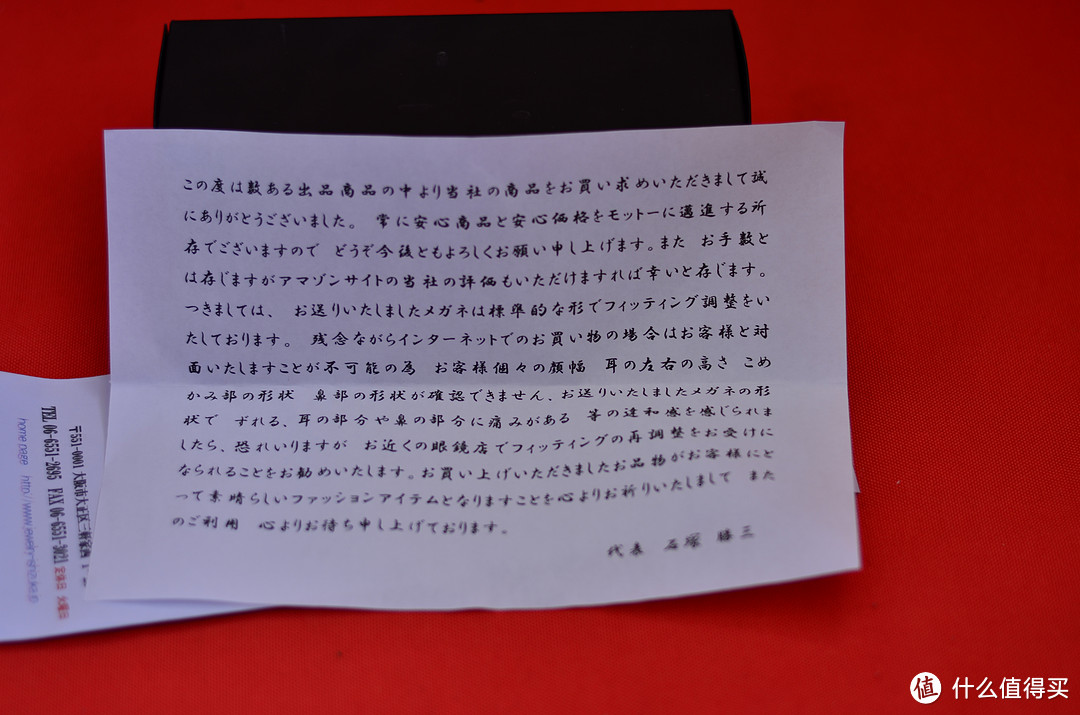 この度は数ある出品商品の中より当社の商品をお買い求めいただきまして誠
にありがとうございました。 常に安心商品と安心価格をモットーに邁進する所
存でございますので どうぞ今後ともよろしくお願い申し上げます。また お手数と
は存じますがアマゾンサイトの当社の評価もいただけますれば幸いと存じます。
つきましては、 お送りいたしましたメガネは標準的な形でフィッティング調整をい
たしております。 残念ながらインターネットでのお買い物の場合はお客様と対
面いたしますことが不可能の為 お客様個々の顔幅 耳の左右の高さ こめ
かみ部の形状 鼻部の形状が確認できません、お送りいたしましたメガネの形
状で ずれる、耳の部分や鼻の部分に痛みがある 等の違和感を感じられま
したら、恐れいりますが お近くの眼鏡店でフィッティングの再調整をお受けに
なられることをお勧めいたします。お買い上げいただきましたお品物がお客様にと
って素晴らしいファッションアイテムとなりますことを心よりお祈りいたしまして また
のご利用 心よりお待ち申し上げております。
代表 石塚 勝三
〒551-0001 大阪市大正区三軒家西
TEL 06-6551-2695 FAX 06-6551-3021 定休日 火曜日
home page http://www.
值 什么值得买